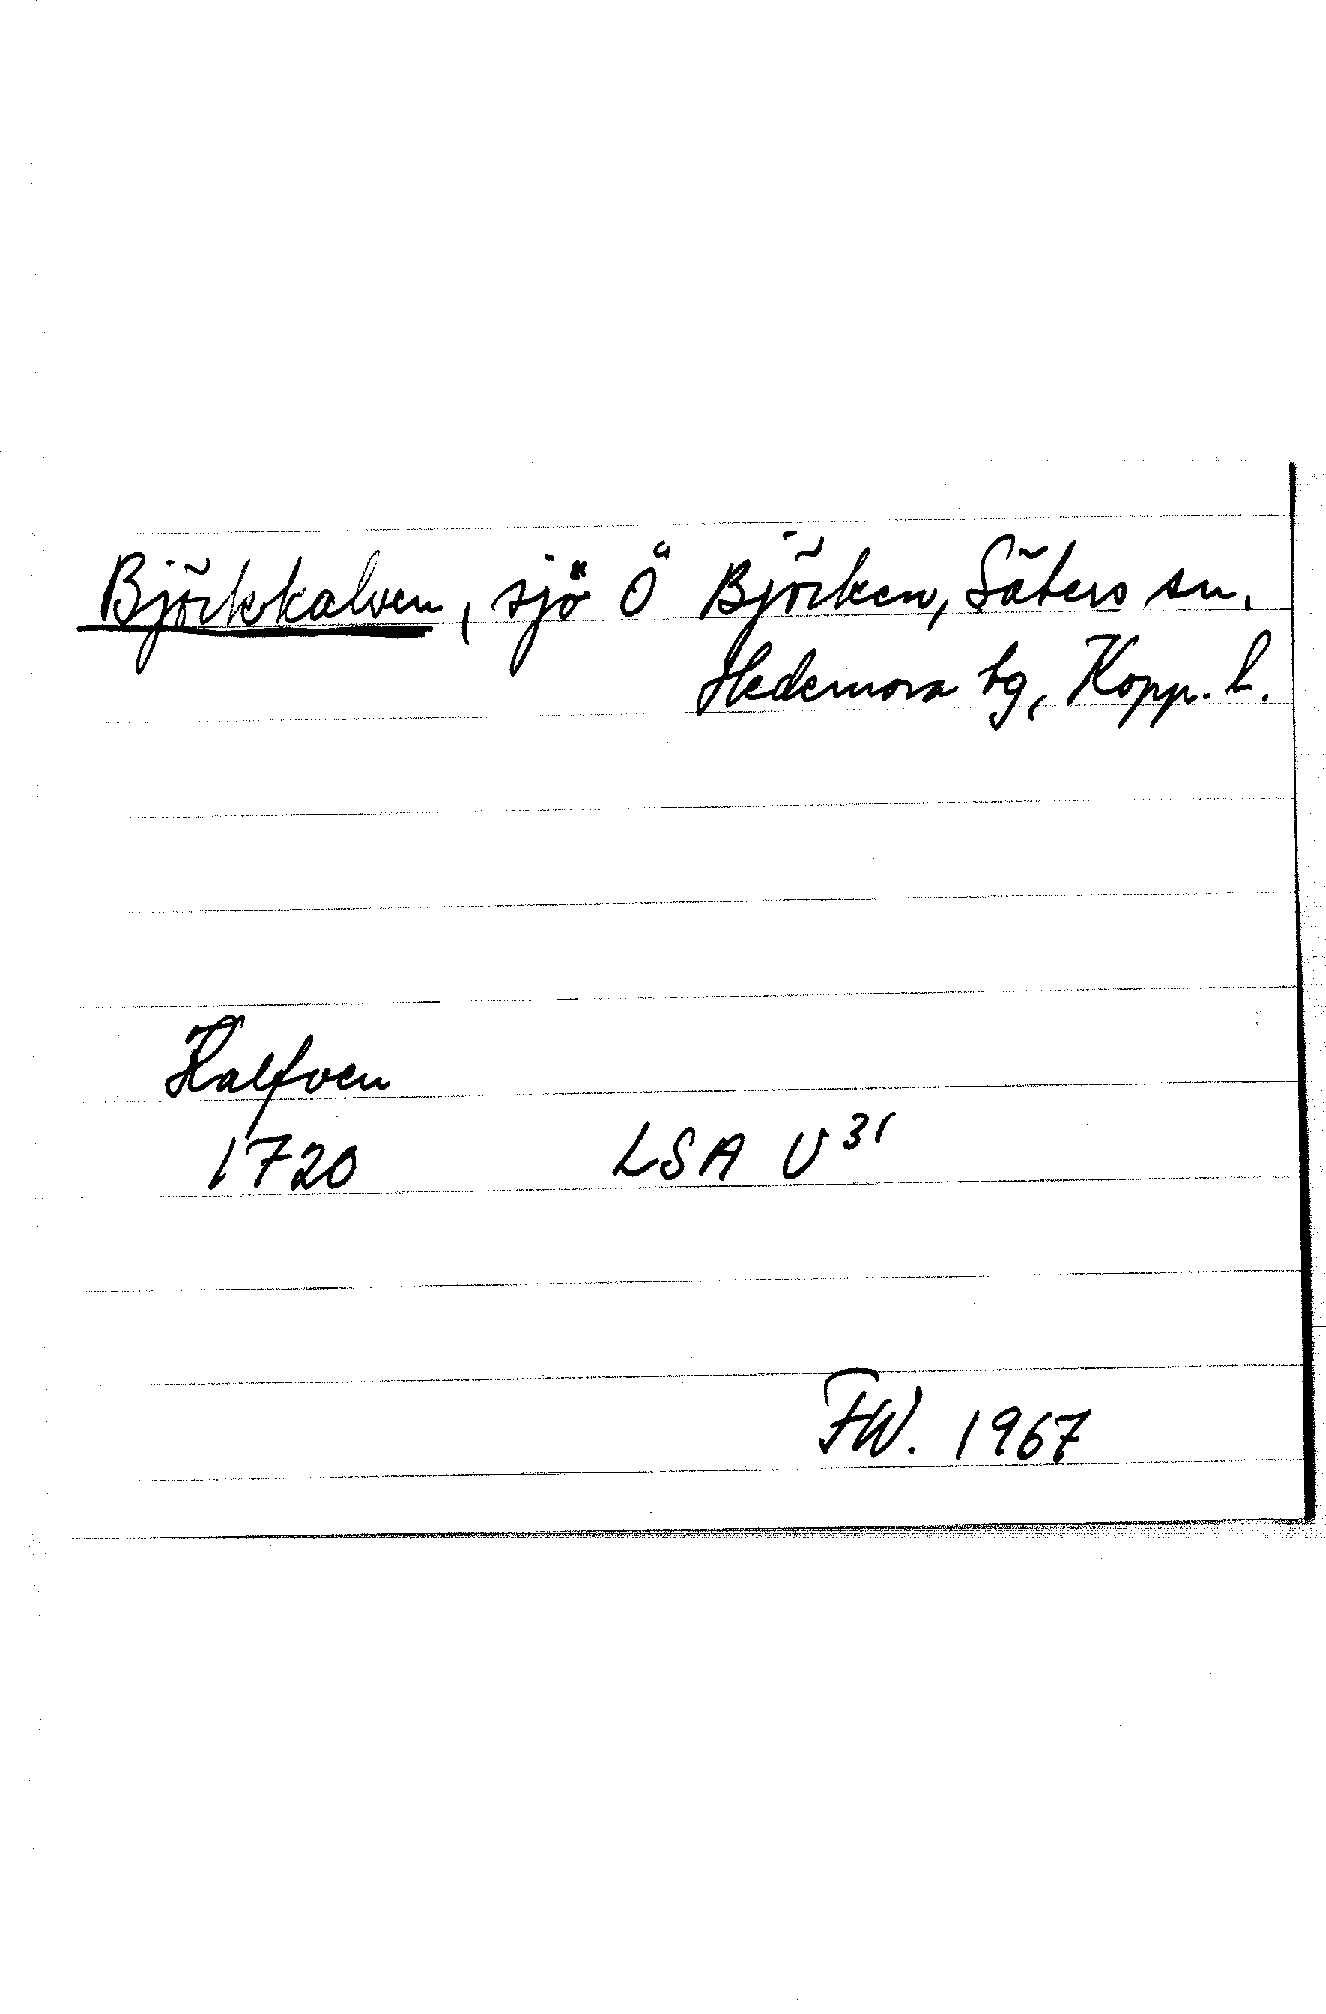 Björkkalven, sjö Ö Björken, Säters sn.
Hedemora tg, Kopp. l.
Kalfven
1720 LSA U³¹
FW. 1967